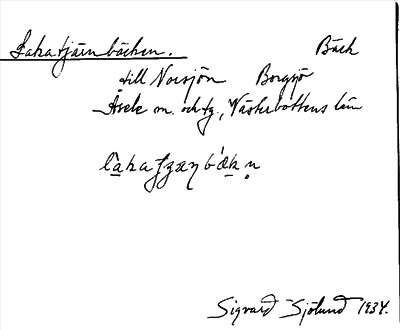 Lakatjärnbäcken. Bäck
till Norsjön Borgsjö
Åsele sn. och tg., Västerbottens län
Sigvard Sjölund 1934.